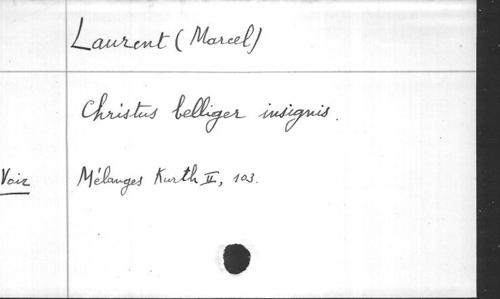 Laurent (Marcel)
Christus belliger insignis.
Voir Mélanges Kurth II, 103.